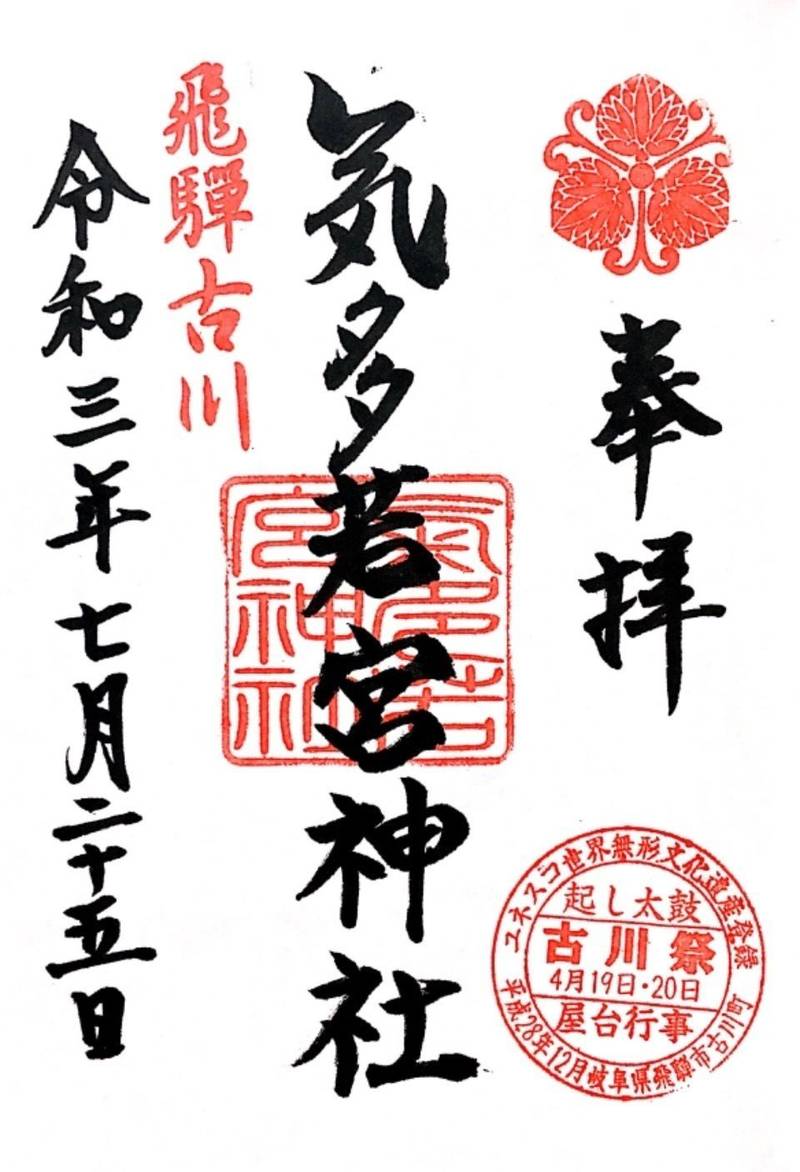 奉拝
気多若宮神社
飛騨古川
令和三年七月二十五日
氣多若宮神社
ユネスコ世界無形文化遺産登録
起し太鼓
古川祭
4月19日・20日
屋台行事
平成28年12月岐阜県飛騨市古川町